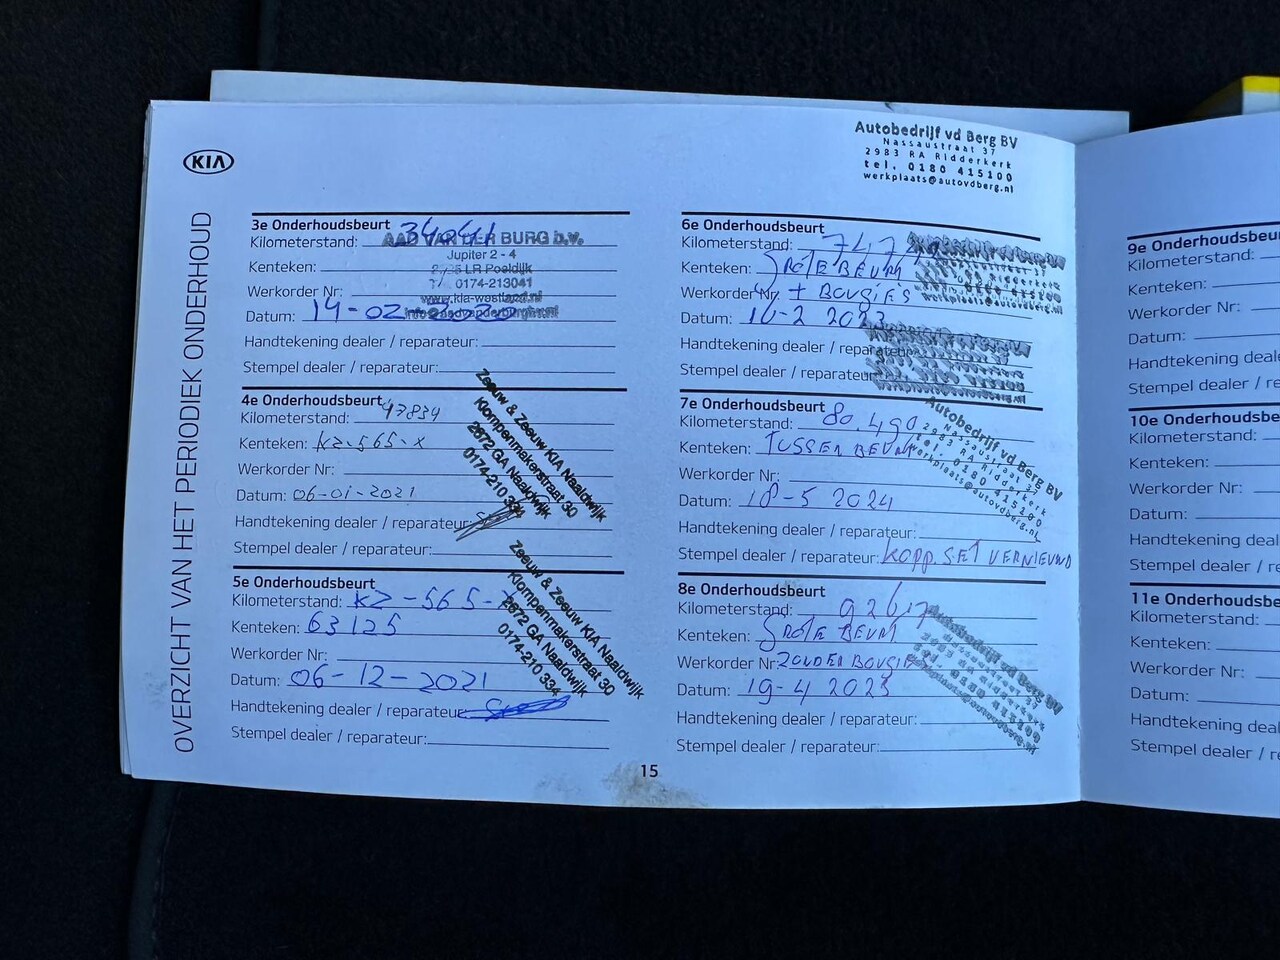 KIA
OVERZICHT VAN HET PERIODIEK ONDERHOUD
Autobedrijf vd Berg BV
Nassaustraat 37
2983 RA Ridderkerk
tel. 0180 415100
werkplaats@autovdberg.nl
3e Onderhoudsbeurt
Kilometerstand: 34041
AAD VAN DER BURG b.v.
Jupiter 2 - 4
Kenteken:
LR Poeldijk
Werkorder Nr:
0174-213041
www.kia-westland.nl
Datum: 14-02-2020
Handtekening dealer / reparateur:
Stempel dealer / reparateur:
4e Onderhoudsbeurt
Kilometerstand: 47834
Kenteken: KZ-565-X
Werkorder Nr:
Datum: 06-01-2021
Handtekening dealer / reparateur:
Stempel dealer / reparateur:
Zeeuw & Zeeuw KIA Naaldwijk
Klompenmakerstraat 30
2672 GA Naaldwijk
0174-210 334
5e Onderhoudsbeurt
Kilometerstand: KZ-565-X
Kenteken: 63125
Werkorder Nr:
Datum: 06-12-2021
Handtekening dealer / reparateur:
Stempel dealer / reparateur:
Zeeuw & Zeeuw KIA Naaldwijk
Klompenmakerstraat 30
2672 GA Naaldwijk
0174-210 334
6e Onderhoudsbeurt
Kilometerstand:
Kenteken: GROTE BEURT
Werkorder Nr: + BOUGIE'S
Datum: 10-2 2023
Handtekening dealer / reparateur:
Stempel dealer / reparateur:
7e Onderhoudsbeurt
Kilometerstand: 80.490
Kenteken: TUSSEN BEURT
Werkorder Nr:
Datum: 18-5 2024
Handtekening dealer / reparateur:
Stempel dealer / reparateur: KOPP. SET VERNIEUWD
Autobedrijf vd Berg BV
Nassaustraat 37
2983 RA Ridderkerk
tel. 0180 415100
werkplaats@autovdberg.nl
8e Onderhoudsbeurt
Kilometerstand: 92617
Kenteken: GROTE BEURT
Werkorder Nr: ZONDER BOUGIES
Datum: 19-4 2025
Handtekening dealer / reparateur:
Stempel dealer / reparateur:
Autobedrijf vd Berg BV
15
9e Onderhoudsbeu
Kilometerstand:
Kenteken:
Werkorder Nr:
Datum:
Handtekening deale
Stempel dealer / re
10e Onderhoudsbe
Kilometerstand:
Kenteken:
Werkorder Nr:
Datum:
Handtekening deal
Stempel dealer / re
11e Onderhoudsbe
Kilometerstand:
Kenteken:
Werkorder Nr:
Datum:
Handtekening deale
Stempel dealer / re